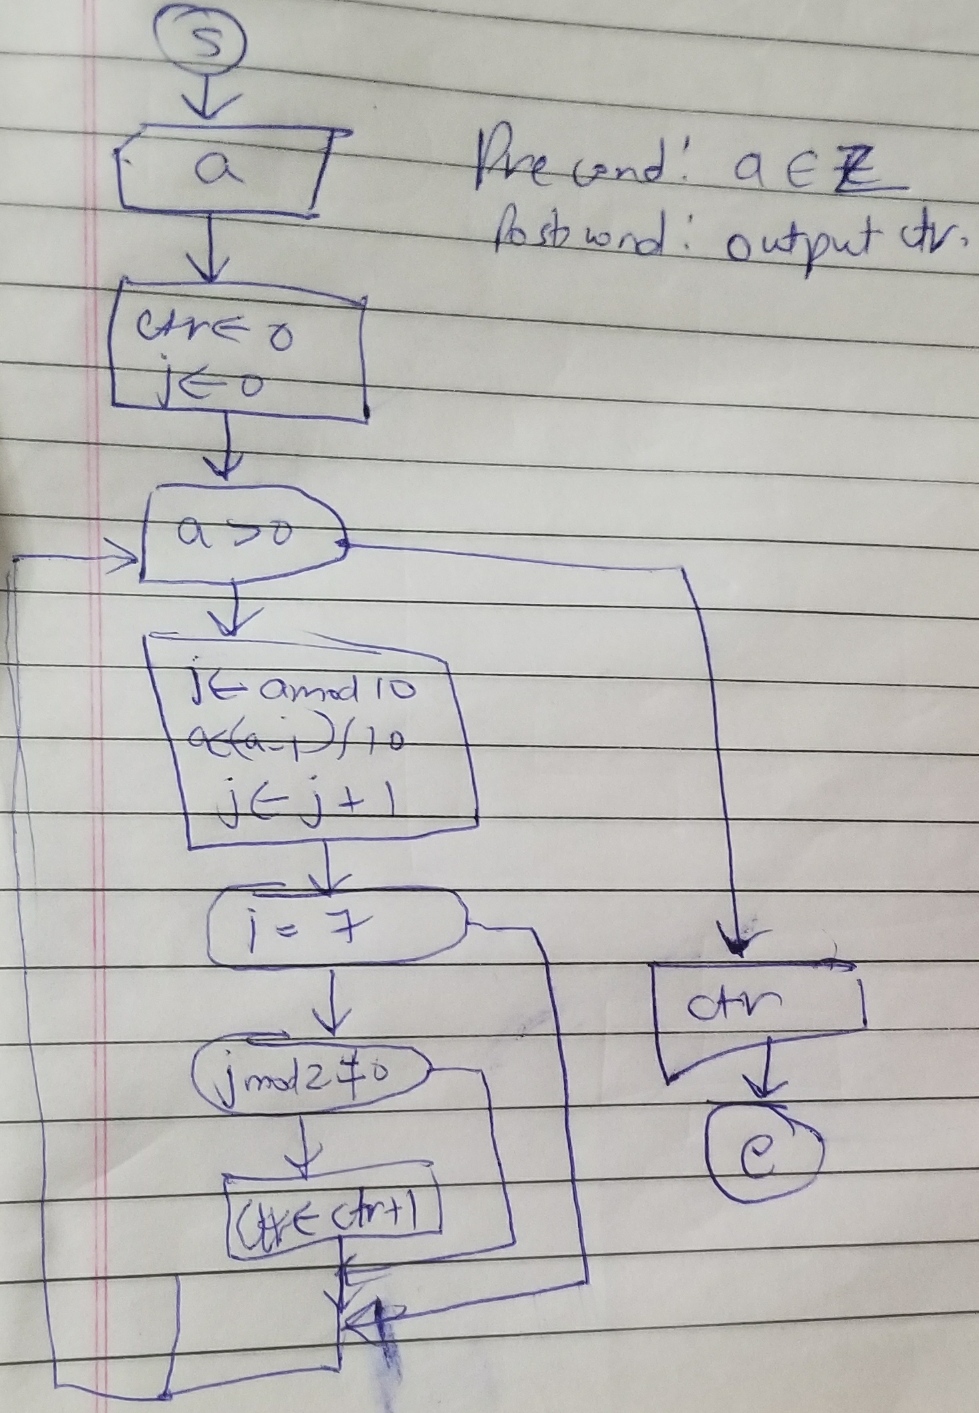 S
a
Precond: a ∈ Z
Postcond: output ctr.
ctr ← 0
j ← 0
a > 0
j ← a mod 10
a ← (a - j) / 10
j ← j + 1
j = 7
j mod 2 ≠ 0
ctr ← ctr + 1
ctr
e